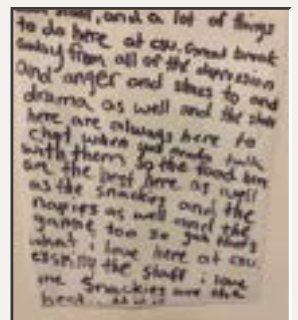 and a lot of things
to do here at csu. Great break
away from all of the depression
and anger and stress to and
drama as well and the staff
here are always here to
chat when you need a talk
with them so the food here
are the best here as well
as the snackies and the
napies as well and the
game too so yeah thats
what i love here at csu.
the staff i love
the snackies are the
best